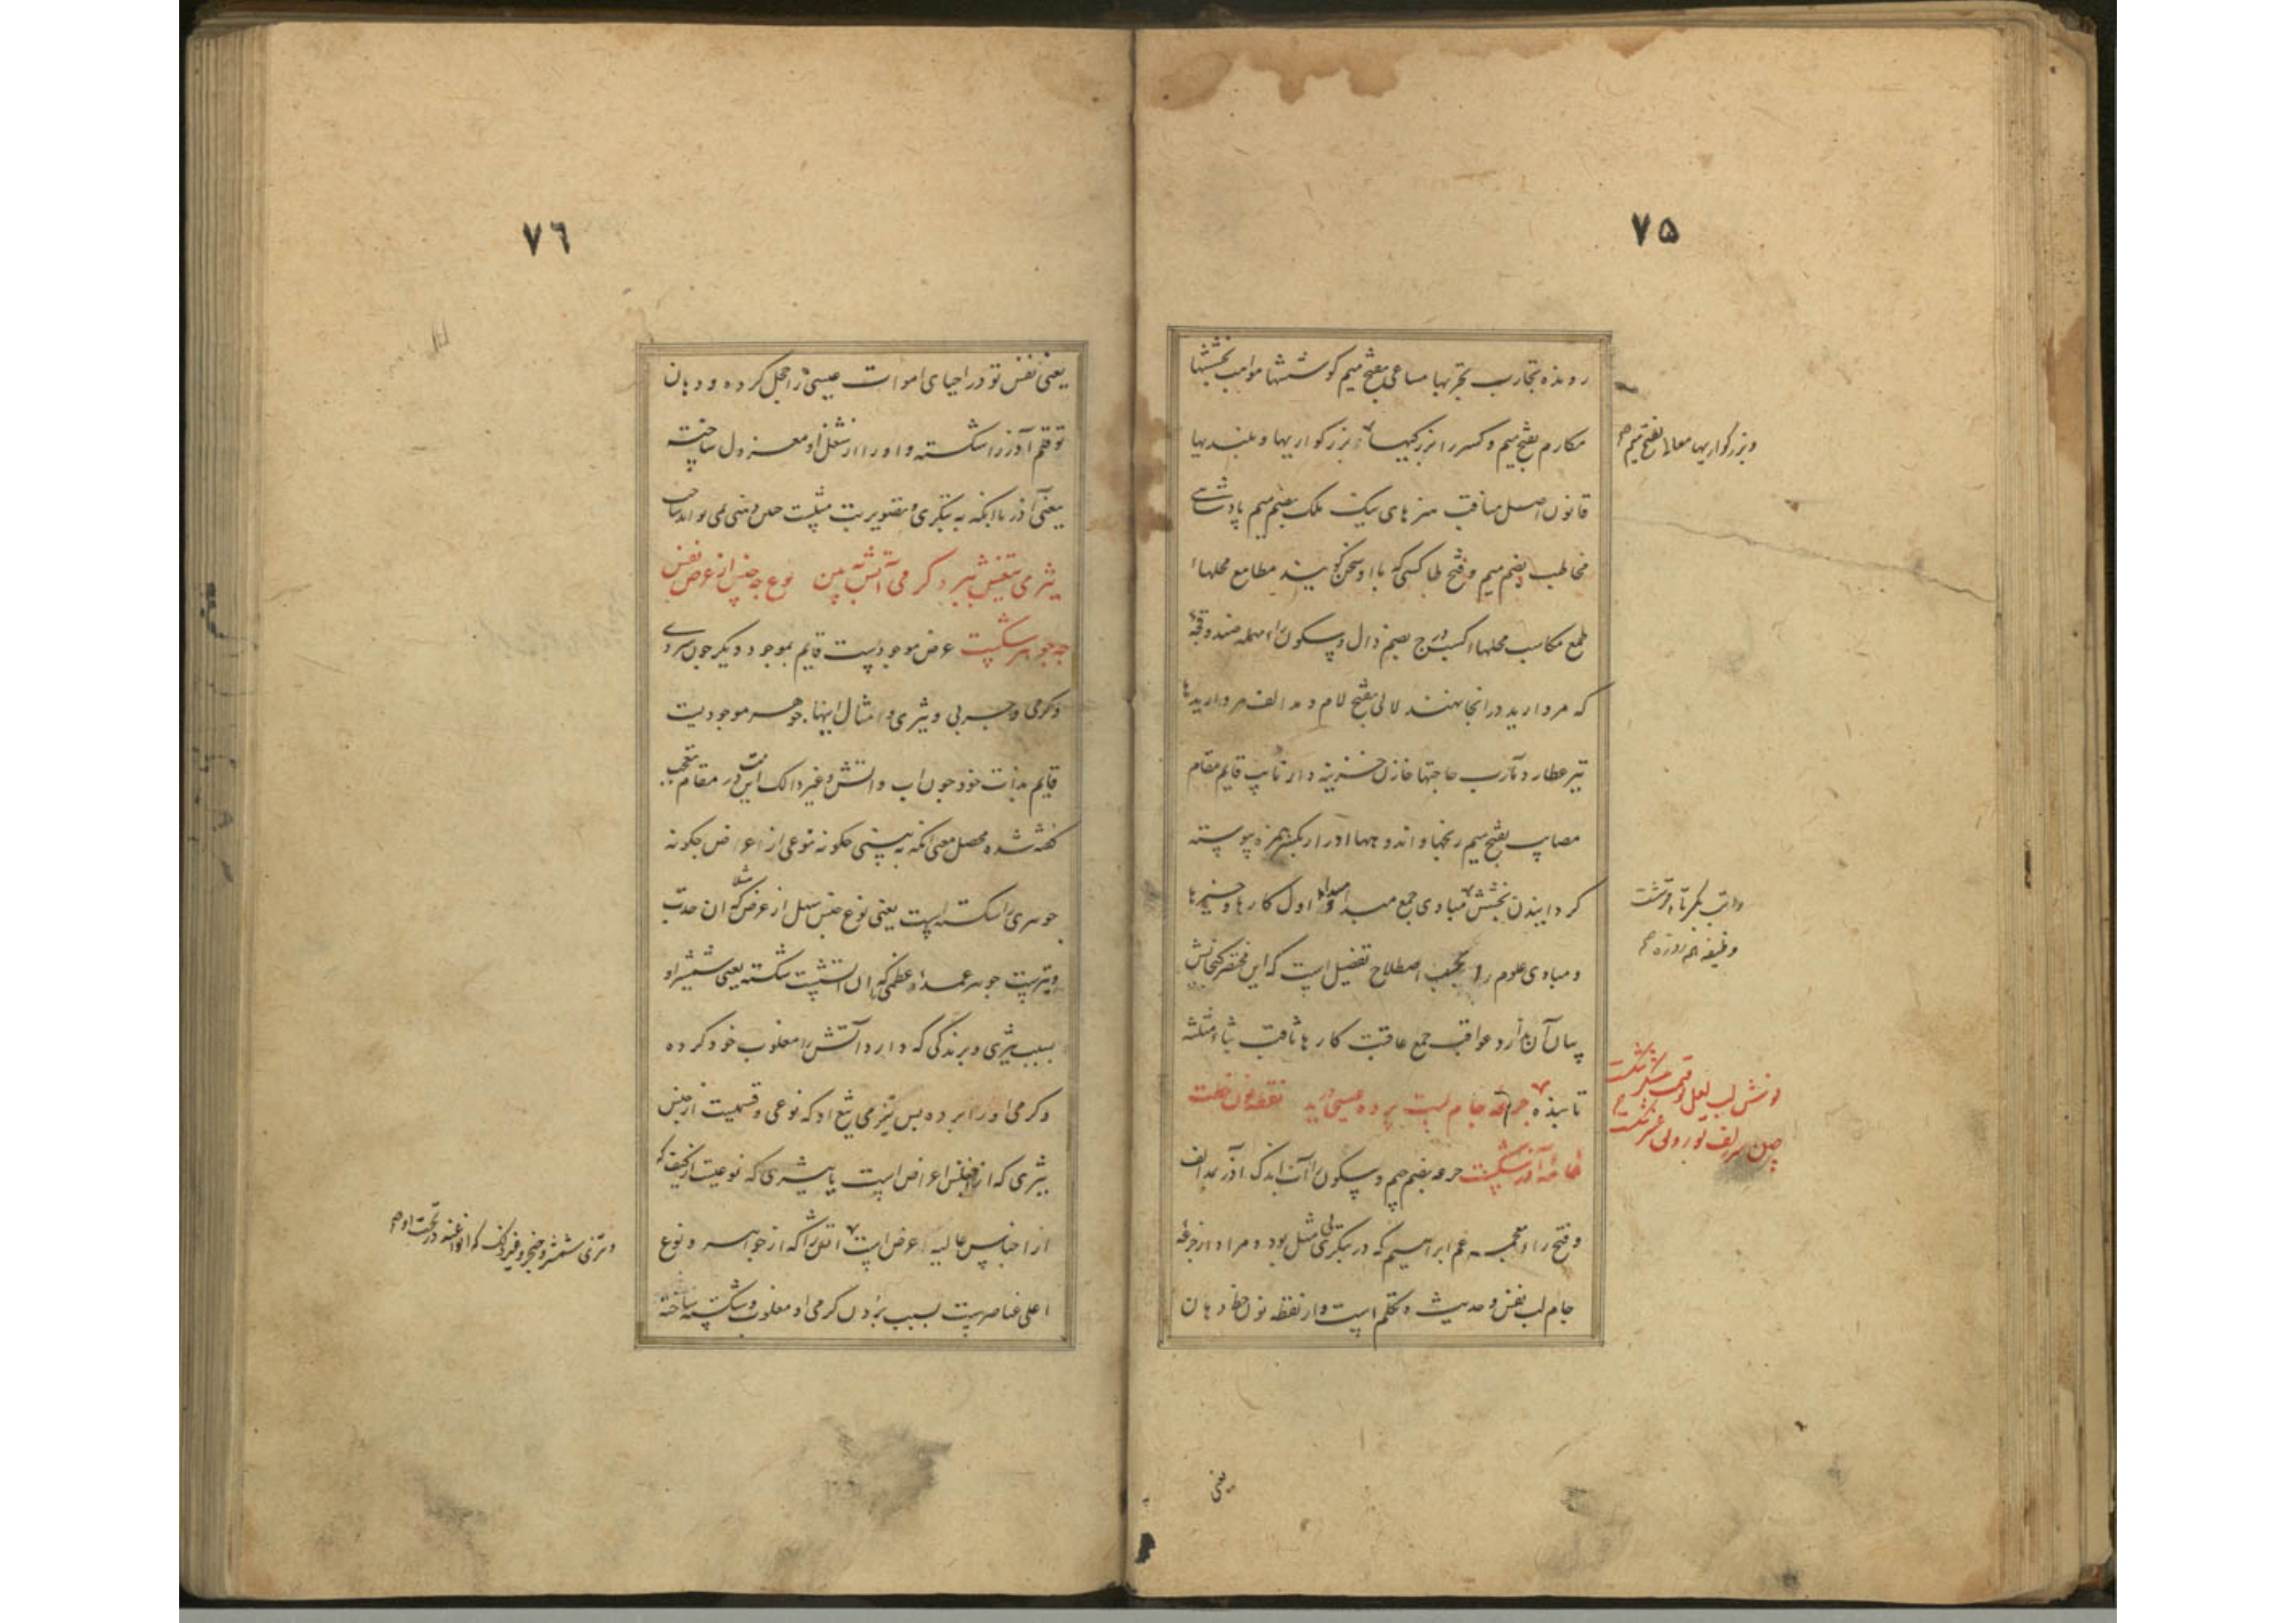 ۷۵
رونده تجارب تجربها مساعی بفتح میم کوششها مواهب بخششها
مکارم بفتح میم و کسر را بزرکیها بزرکواریها و بلندیها
و بزرکواریها معالی بفتح میم صح
قانون اصل مناقب هنرهای نیک ملک بضم میم پادشاهی
مخاطب بضم میم و فتح طا کسی که با او سخن کویند مطامع محلهاء
طمع مکاسب محلهاء کسب درج بضم دال و سکون راء مهمله صندوقچه
که مروارید در انجا نهند لالی بفتح لام و مد الف مرواریدها
تیر عطارد مآرب حاجتها خازن خزینه دار نایب قایم مقام
مصایب بفتح میم رنجها و اندوهها ادرار بکسر همزه پیوسته
کردانیدن بخشش مبادی جمع مبدا و مبدا اول کارها و چیزها
و مبادی علوم را بحسب اصطلاح تفصیل است که این مختصر کنجایش
بیان آن ندارد عواقب جمع عاقبت کارها ثاقب بثاء مثلثه
تابنده جرعه جام لبت پرده عیسی درید نقطه نون خطت
خامه آذر شکست جرعه بضم جیم و سکون را آب اندک آذر بمد الف
و فتح راء معجمه عم ابراهیم که در بتکری مثل بود و مراد از جرعه
جام لب نفس و حدیث و تکلم است و از نقطه نون خط دهان
یعنی
۷۶
یعنی نفس تو در احیای اموات عیسی را خجل کرده و دهان
تو قلم آذر را شکسته و او را از شغل او معزول ساخته
یعنی آذر با انکه به بتکری و تصویر بت مثلست چنین دهنی نمی تواند ساخت
تیزی تیغش ببرد کرمی آتش ببین نوع چه جنس از عرض نفس
چه جوهر شکست عرض موجودیست قایم بموجود دیکر چون سردی
و کرمی و چربی و تیزی و امثال اینها جوهر موجودیست
قایم بذات خود چون اب و اتش و غیر ذالک این بیت در مقام تعجب
کفته شده محصل معنی انکه به بینی چکونه نوعی از اعراض چکونه
جوهری را شکسته است یعنی نوع جنس سهل از عرض که مثلا ان حدت
و تیزیست جوهر عمده و عظمی که ان آتشست شکسته یعنی شمشیر او
بسبب تیزی و برندکی که دارد آتش را مغلوب خود کرده
و کرمی او را برده پس تیزی تیغ او که نوعی و قسمیست از جنس
تیزی که از اجناس اعراض است یا تیزی که نوعیست از کیف که
از اجناس عالیه عرض است آتش را که از جواهر و نوع
اعلی عناصر است بسبب بردن کرمی او مغلوب و شکسته ساخته